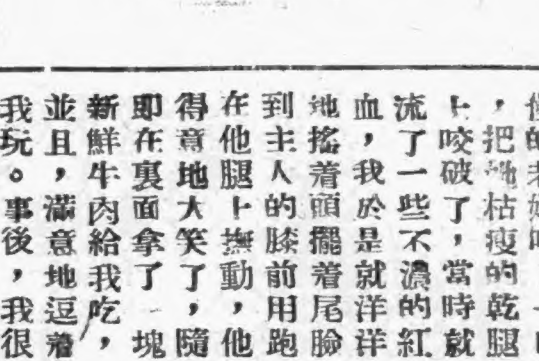 ，把她枯瘦的乾腿
上咬破了，當時就
流了一些不濃的紅
血，我於是就洋洋
地搖着頭擺着尾臉
到主人的膝前用跑
在他腿上撫動，他
得意地大笑了，隨
即在裏面拿了塊
新鮮牛肉給我吃，
並且，滿意地逗着
我玩。事後，我很